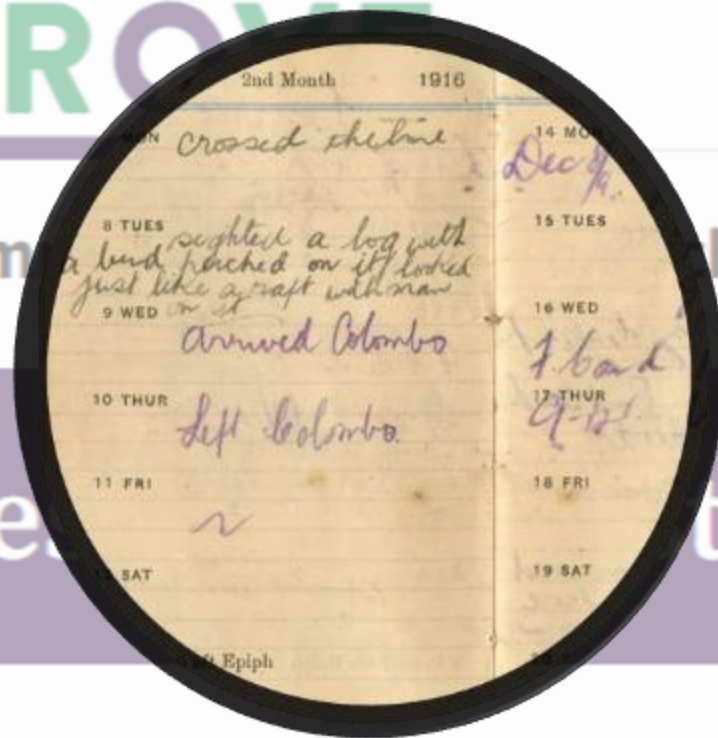 ROVE
2nd Month 1916
MON crossed the line
8 TUES sighted a log with
a bird perched on it looked
just like a raft with man
on it
9 WED
arrived Colombo
10 THUR
Left Colombo.
11 FRI
~
SAT
Epiph
14 MON
Dec
15 TUES
16 WED
17 THUR
18 FRI
19 SAT